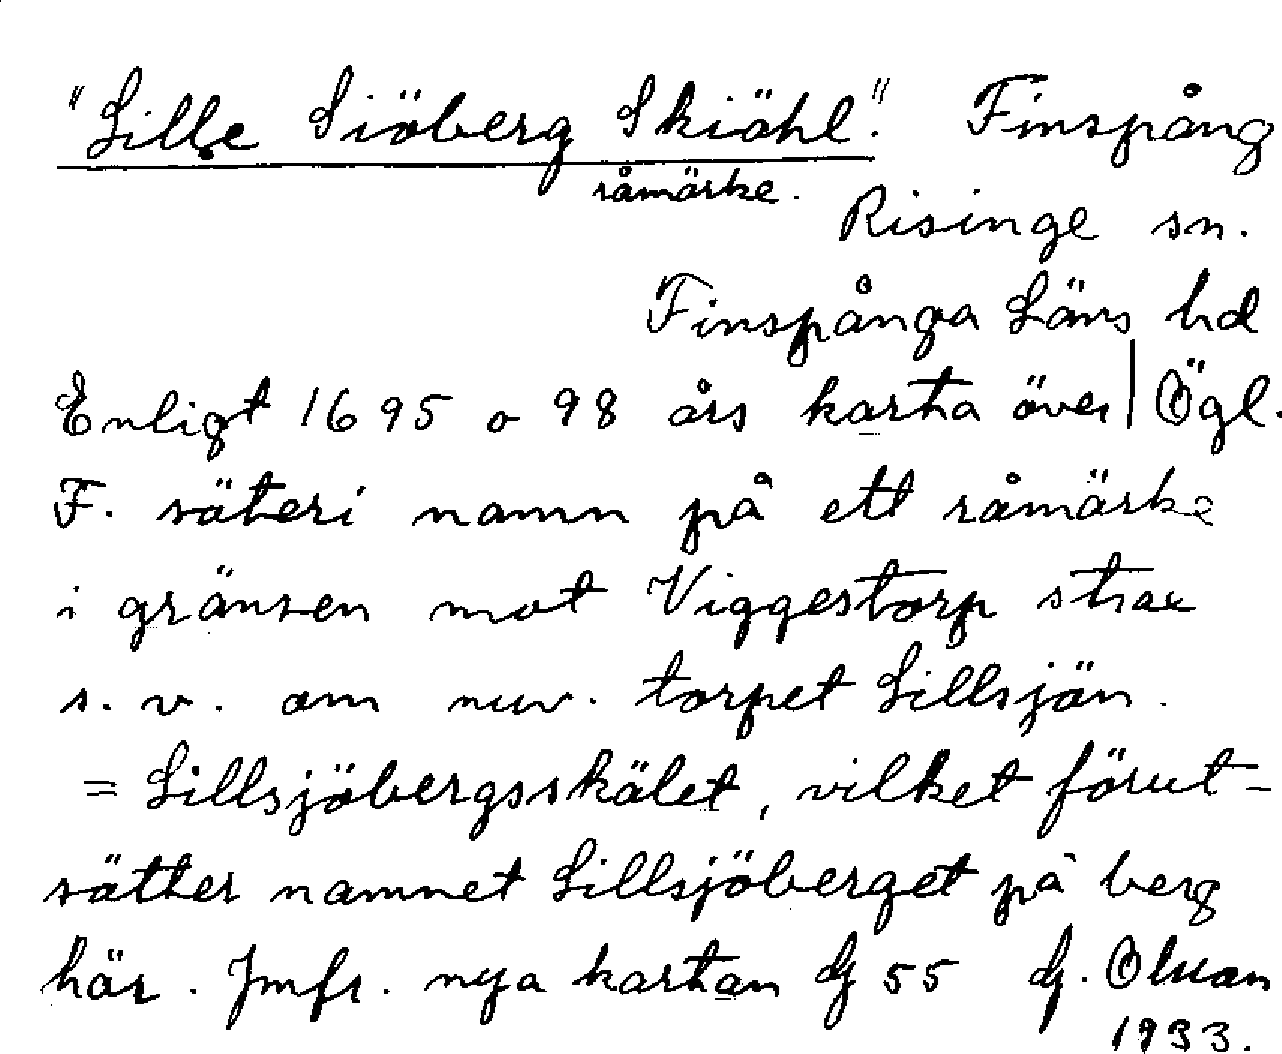 "Lille Siöberg Skiöhl". Finspång
råmärke.
Risinge sn.
Finspånga Läns hd
Enligt 1695 o 98 års karta över | Ögl.
F. säteri namn på ett råmärke
i gränsen mot Viggestorp strax
s. v. om nuv. torpet Lillsjön.
= Lillsjöbergsskälet, vilket förut-
sätter namnet Lillsjöberget på berg
här. Jmfr. nya kartan G 55 G. Olsson
1933.